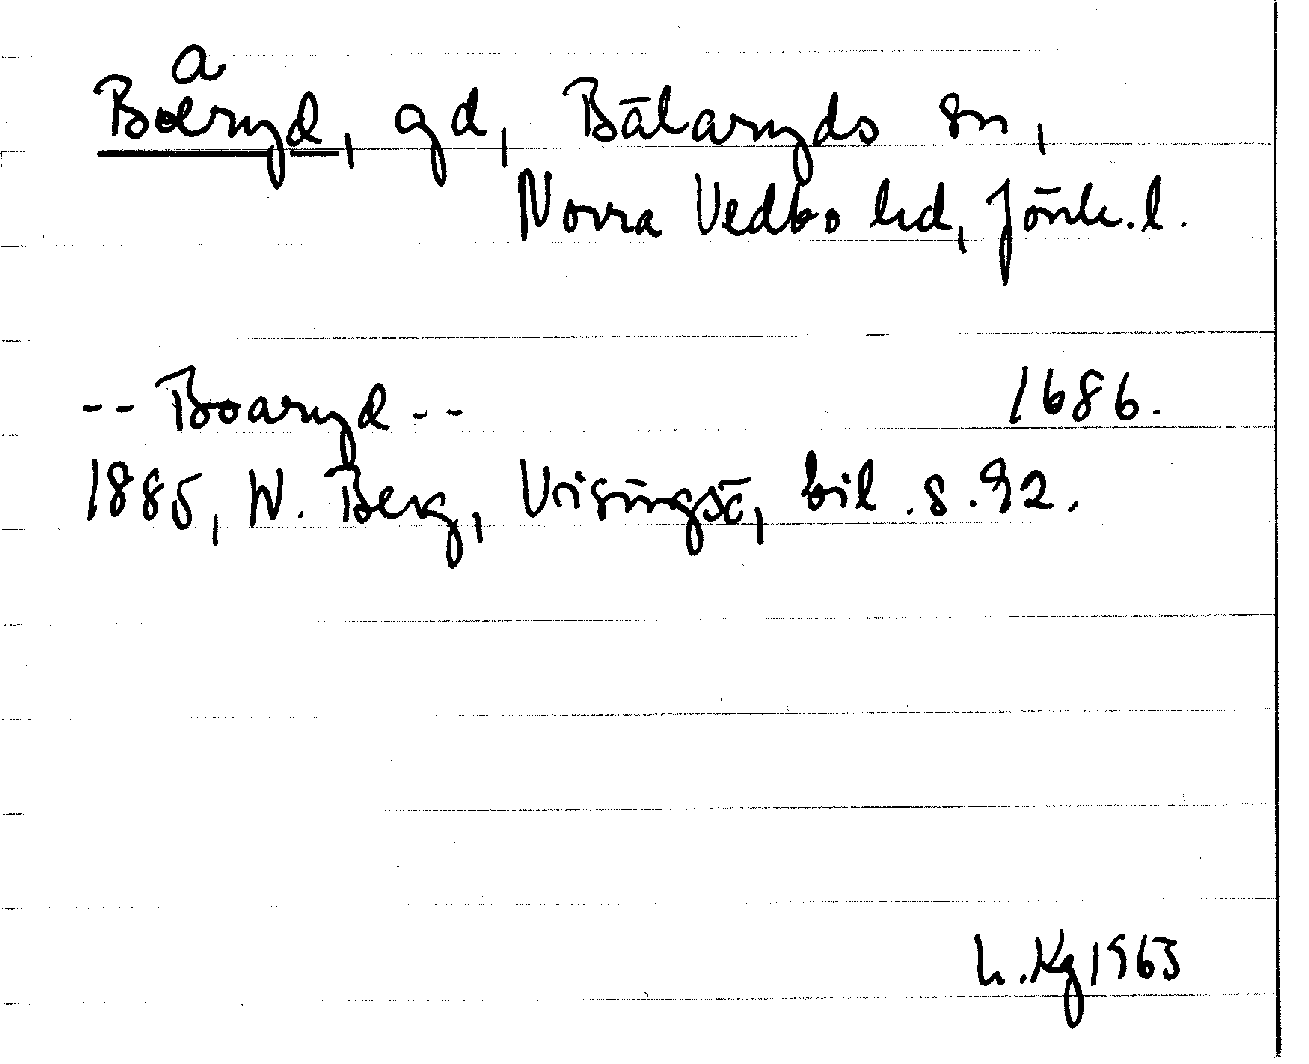 a
Boeryd, gd, Bälaryds sn,
Norra Vedbo hd, Jönk. l.
-- Boaryd -- 1686.
1885, W. Berg, Visingsö, bil. s. 92.
L. Kg 1963